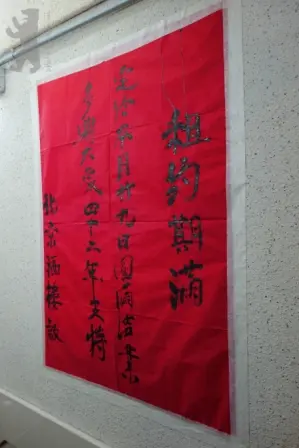 租約期滿
定於本月拾九日圓滿結業
多謝大家四十二年支持
北京酒樓啟